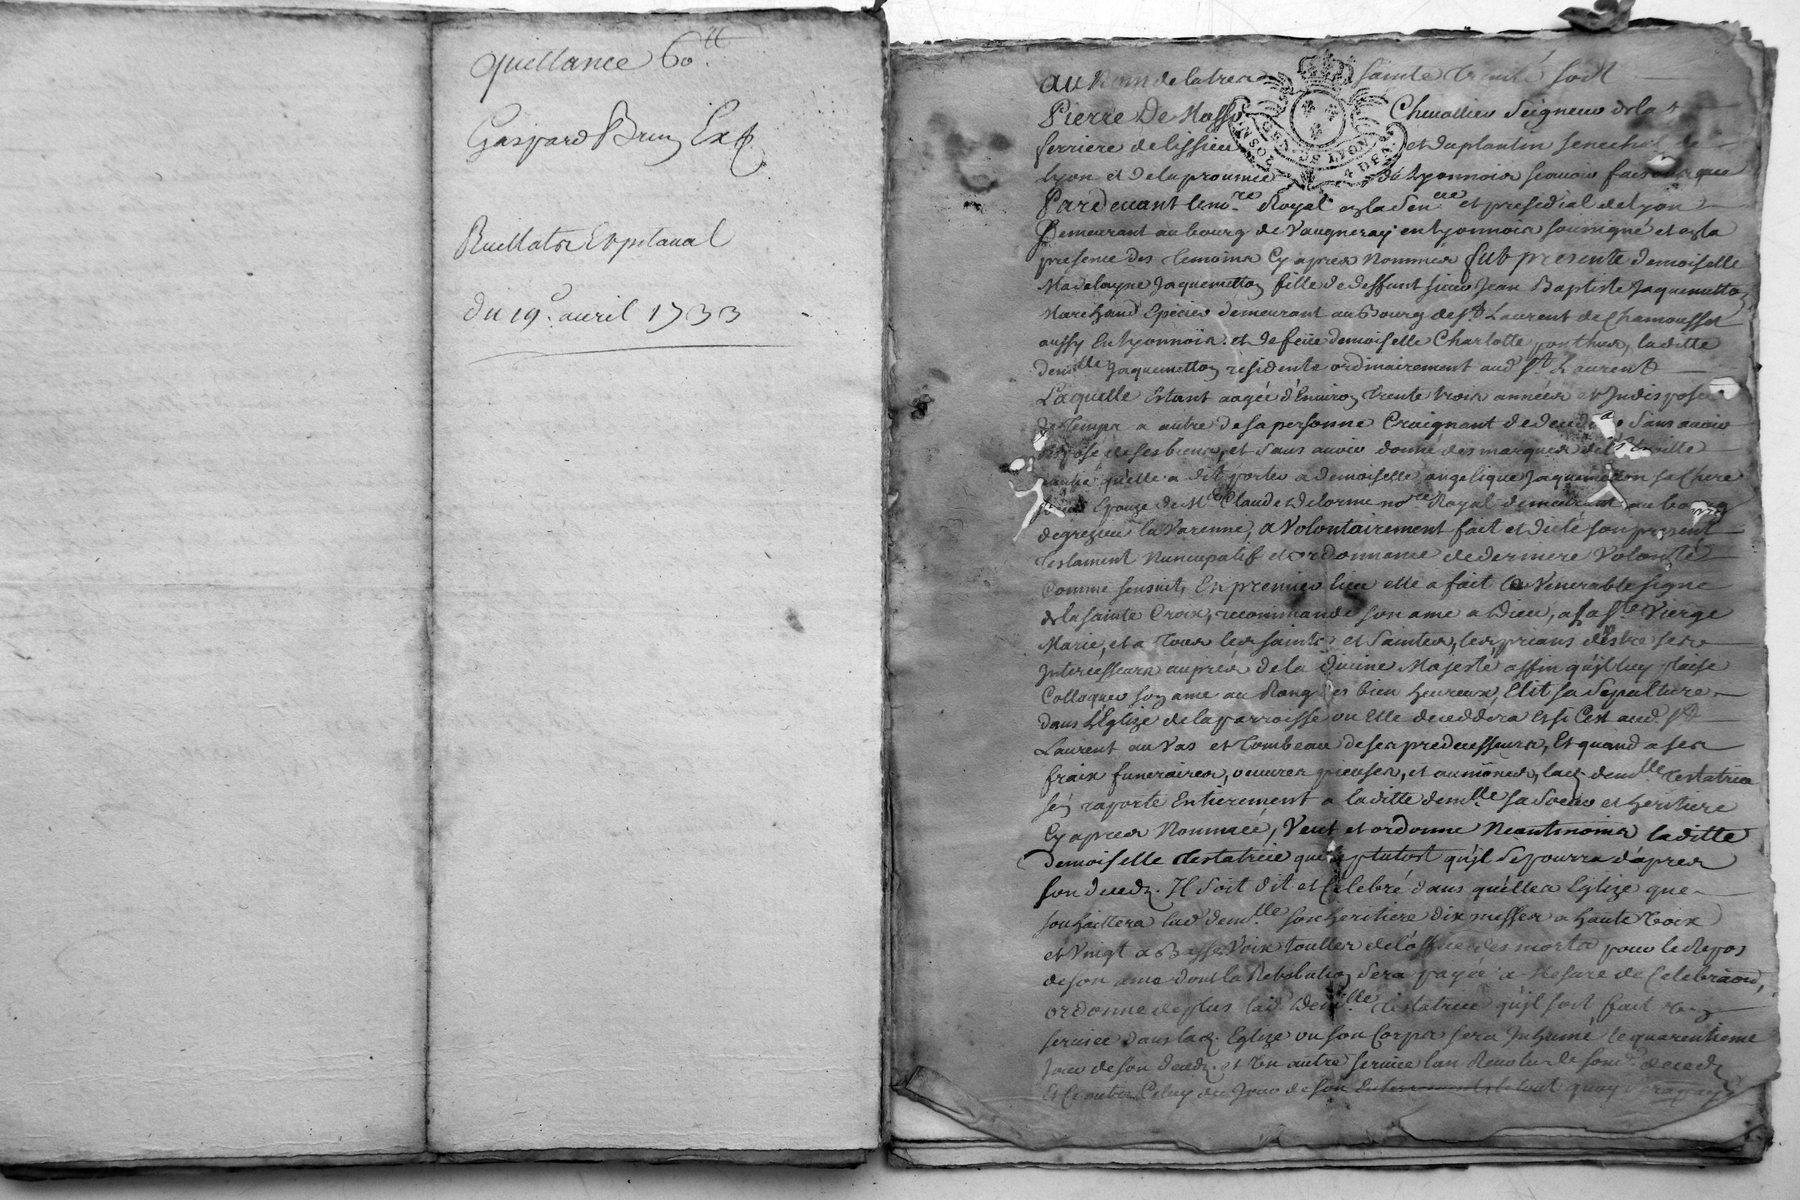 quittance 60ᵗᵗ
Gaspard Brun
du 19e. auril 1733
au Nom de la tres sainte trinité soit
Pierre De Chevallier Seigneur de la
ferriere de lissieu et du plantin senechal de
Lyon et de la prouince du Lyonnois scauoir faisons que
Pardeuant le no.re Royal en la Sen.ée et presidial de Lyon
Demeurant au bourg de Vaugneray en Lyonnois soussigné et en la
presence des temoins Cy apres Nommés fut presente demoiselle
Madelayne Jaquemetton fille de deffunt sieur Jean Baptiste Jaquemetton
Marchand Epicier demeurant au Bourg de St. Laurent de Chamousset
aussy en Lyonnois. et de feüe demoiselle Charlotte ponthus, laditte
dem.lle Jaquemetton residente ordinairement aud. St. Laurent
Laquelle Estant aagée d'Enuiron trente trois années et Indisposée
de temps a autre de sa personne Craignant de deceder Sans auoir
disposé de ses biens, et sans auoir donné des marques de
qu'elle a dit porter a demoiselle angelique Jaquemetton sa Chere
Epouze de Mr. Claude Delorme no.re Royal demeurant au bourg
de grezieu la Varenne, a Volontairement fait et dicté son present
testament Nuncupatif et ordonnance de derniere Volonté
Comme sensuit, En premier lieu elle a fait le Venerable signe
de la sainte Croix, recommandé son ame a Dieu, a la ste. Vierge
Marie, et a tous les saints et saintes, les prians d'estre ses
Intercesseurs aupres de la diuine Majesté affin qu'il luy plaise
Colloquer son ame au Rang des bien heureux, Elit sa Sepulture
dans L'Eglize de la parroisse ou Elle deceddera Et si C'est aud. St.
Laurent au Vas et Tombeau de ses predecesseurs, Et quand a ses
fraix funeraires, oeuures pieuses, et aumônes, lad. dem.lle testatrice
s'en raporte Entierement a laditte dem.lle sa soeur et heritiere
Cy apres Nommée, Veut et ordonne Neantmoins laditte
demoiselle testatrice que plutost qu'il se pourra d'apres
son decedz. Il soit dit et Celebré dans quelles Eglize que
souhaittera lad. dem.lle son heritiere dix messes a haute Voix
et Vingt a Basse Voix touttes de l'office des morts pour le Repos
de son ame dont la Retribution sera payée a Mesure de Celebraôn,
ordonne de plus lad. Dem.lle testatrice qu'il soit fait Un
seruice dans lad. Eglize ou son Corps sera Inhumé le quarentieme
Jour de son decedz. et Un autre seruice lan Reuolu de son d. decedz
Et Ce outre Celuy du Jour de son Enterrement le tout quoy